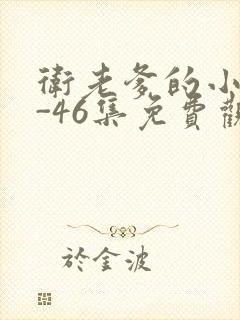 衛老爹的小
-46集免費觀
於金波